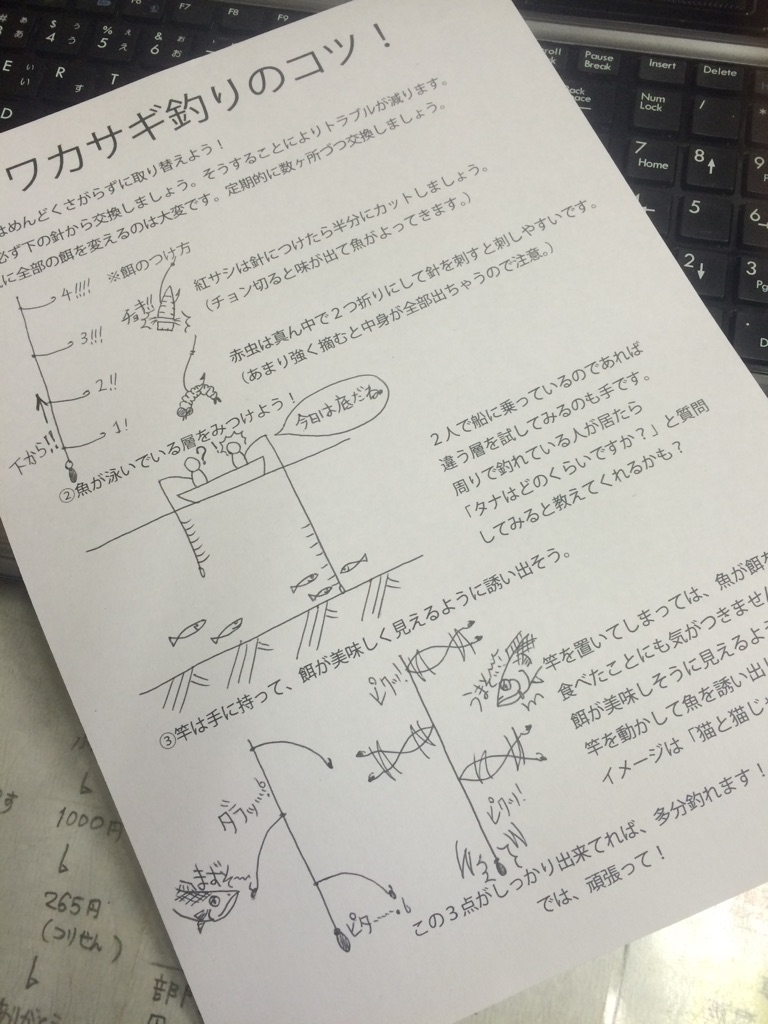 ワカサギ釣りのコツ！
はめんどくさがらずに取り替えよう！
必ず下の針から交換しましょう。そうすることによりトラブルが減ります。
に全部の餌を変えるのは大変です。定期的に数ヶ所づつ交換しましょう。
※餌のつけ方
紅サシは針につけたら半分にカットしましょう。
（チョン切ると味が出て魚がよってきます。）
チョキ!!
赤虫は真ん中で２つ折りにして針を刺すと刺しやすいです。
（あまり強く摘むと中身が全部出ちゃうので注意。）
4!!!!
3!!!
2!!
1!
下から!!
②魚が泳いでいる層をみつけよう！
今日は底だね
?
２人で船に乗っているのであれば
違う層を試してみるのも手です。
周りで釣れている人が居たら
「タナはどのくらいですか？」と質問
してみると教えてくれるかも？
③竿は手に持って、餌が美味しく見えるように誘い出そう。
竿を置いてしまっては、魚が餌を
食べたことにも気がつきません
餌が美味しそうに見えるよう
竿を動かして魚を誘い出し
イメージは「猫と猫じゃ
うまそ〜
ピクッ!
ピクッ!
ダラッ…
まずそ〜
ピター…
この３点がしっかり出来てれば、多分釣れます！
では、頑張って！
1000円
265円
(つりせん)
ありがとう
部
F6
F7
F8
F9
$
4
う
%
5
え
&
6
お
E
い
R
す
T
D
Scroll
Lock
Pause
Break
Insert
Delete
Num
Lock
/
7
Home
8
9
5
6
2
3